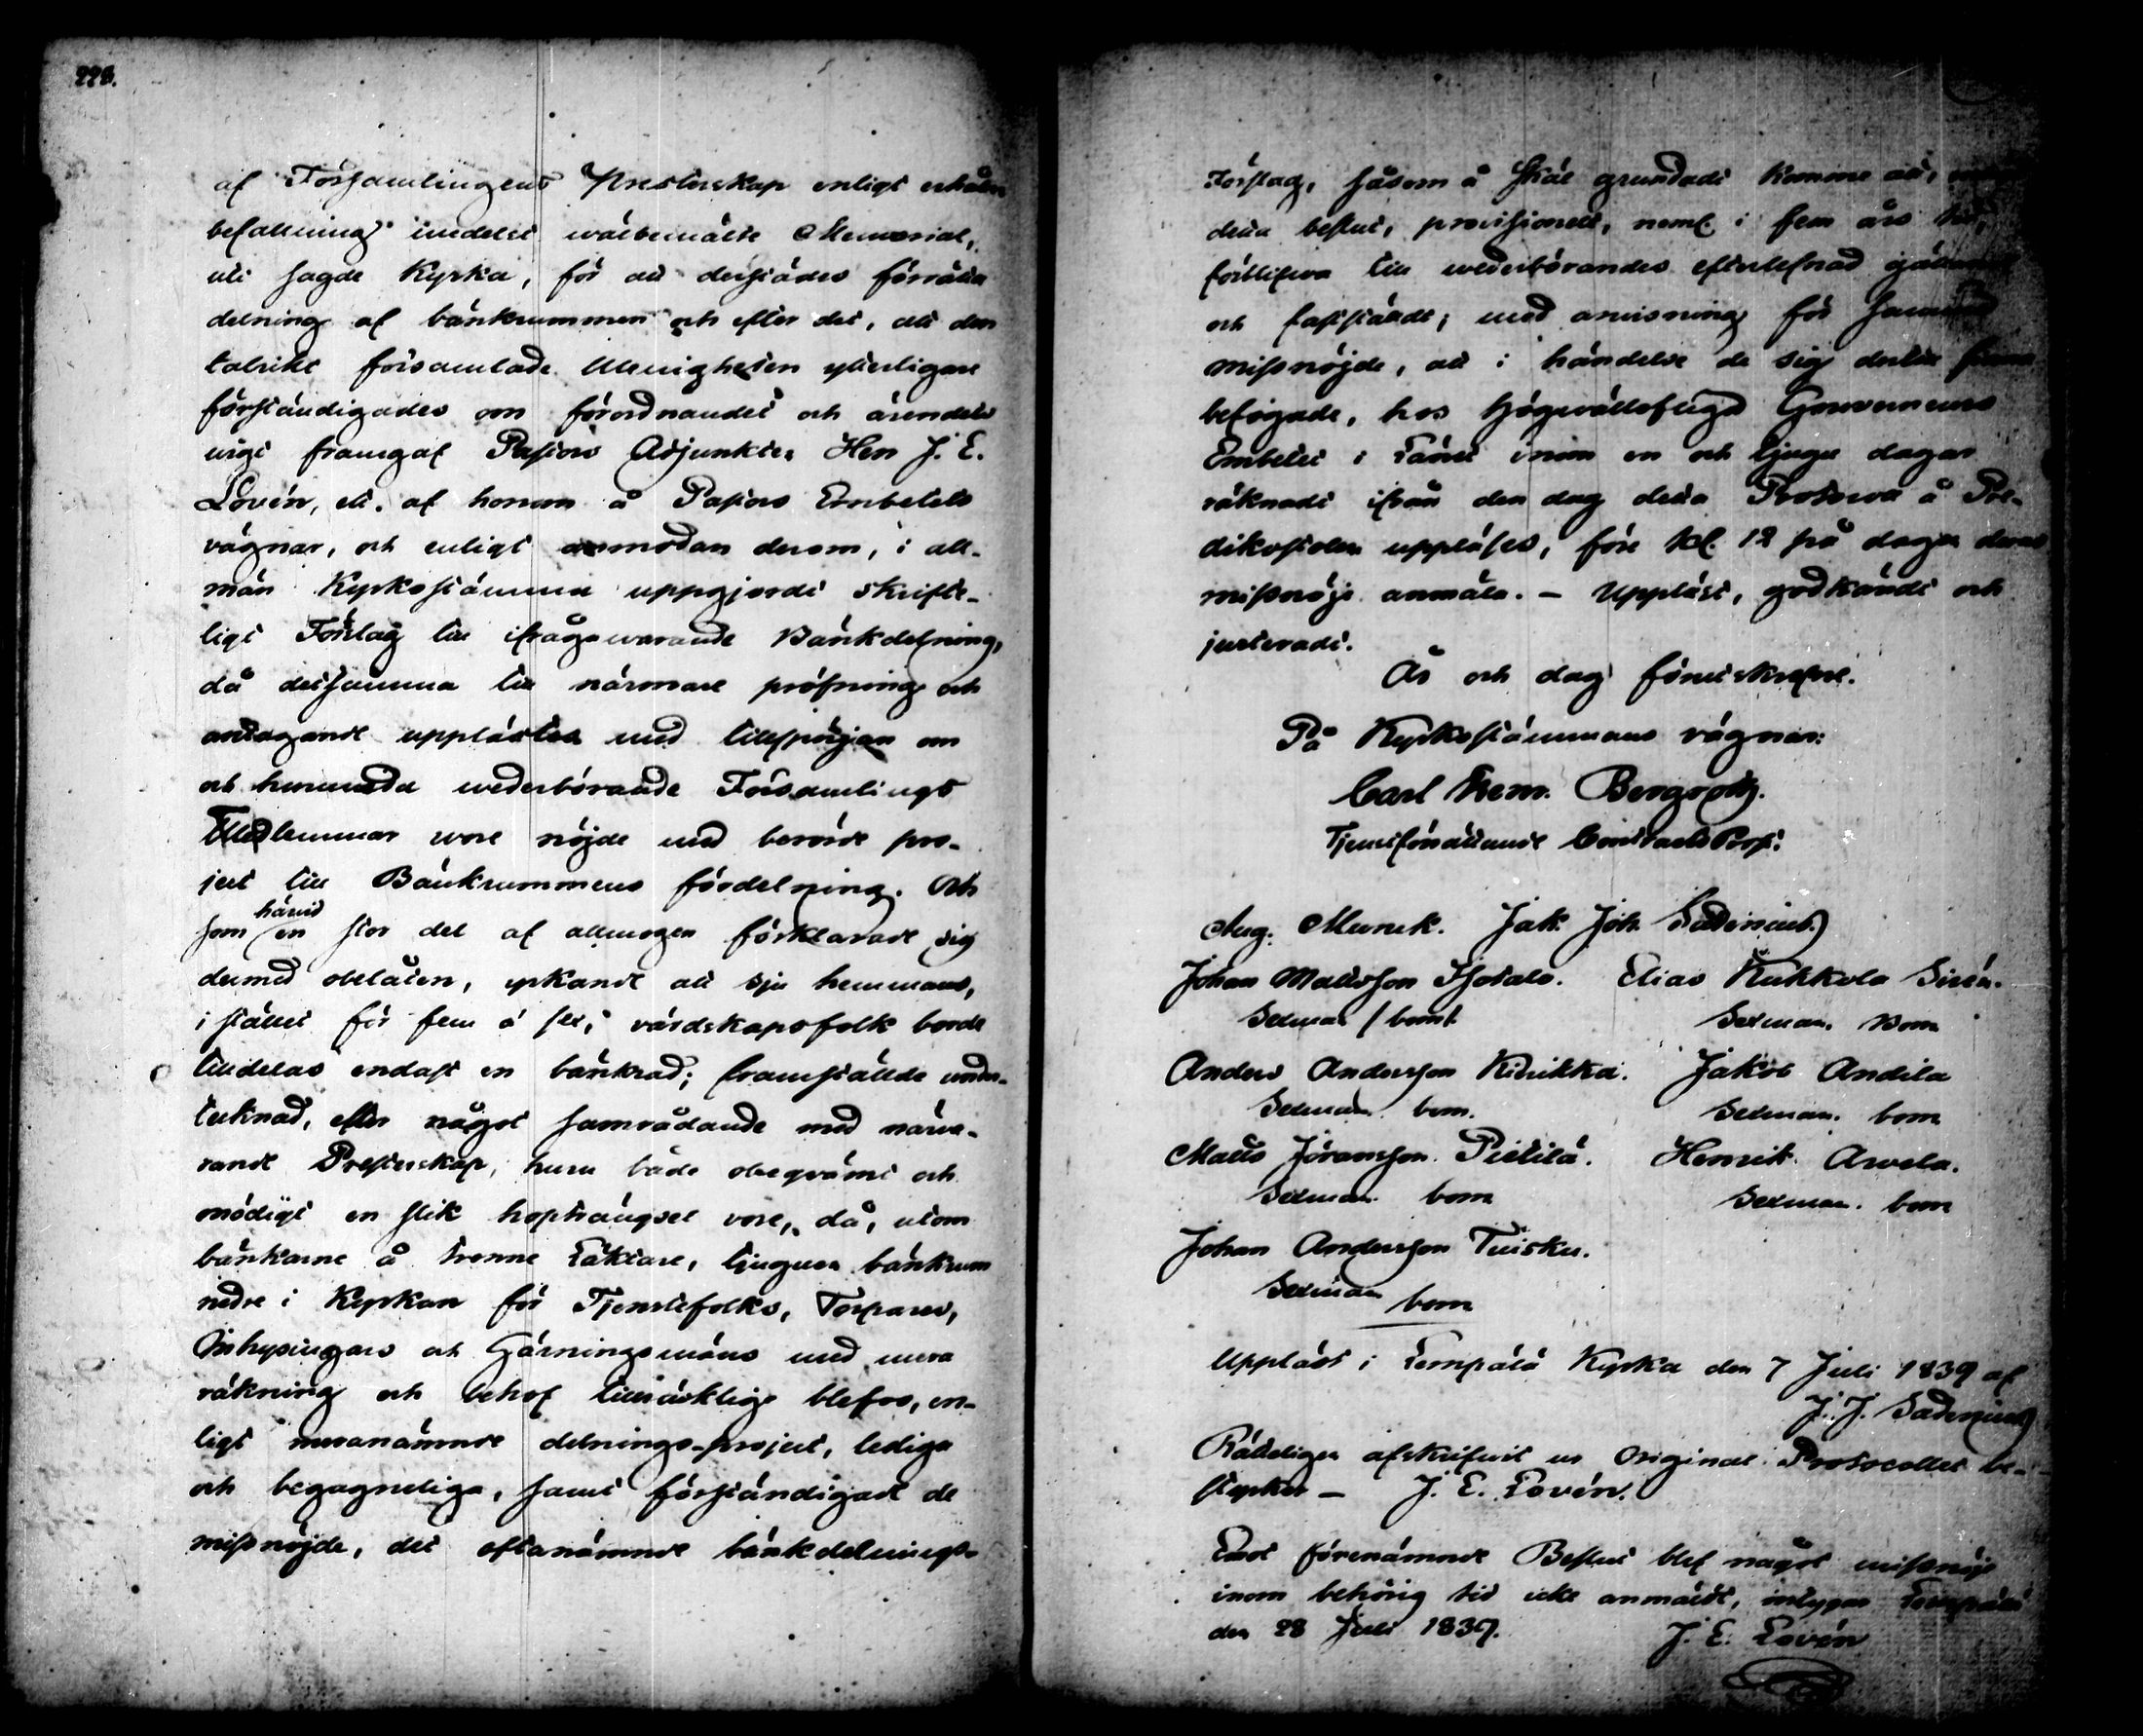 228.
af Församlingens Presterskap enligt erhållen
befallning imedelst wälbemälte Memorial,
uti sagde Kyrka, för att derstädes förrätta
delning af bänkrummen och efter det, att den
talrikt församlade Menigheten ytterligare
förständigades om förordnandet och ärendets
wigt framgaf Pastors Adjunkten Herr J. E.
Lovén, ett af honom å Pastors Embetets
vägnar, och enligt anmodan derom, i all-
män Kyrkostämma uppgjordt skrifte-
ligt Förslag till ifrågawarande Bänkdelning,
då detsamma till närmare pröfning och
antagande upplästes med tillspörjan om
och hurudda wederbörande Församlings
Medlemmar wore nöjde med berörde pro-
ject till Bänkrummens fördelning. Och
som härwid en stor del af allmogen förklarade sig
dermed obelåten, yrkande att sju hemmans,
i stället för fem à sex, värdskapsfolk borde
tilldelas endast en bänkrad; framställde under-
tecknad, efter något samrådande med närwa-
rande Presterskap, huru både obeqvämt och
onödigt en slik hopträngsel vore, då, utom
bänkarne å trenne Läktare, tjugun bänkrum
nedre i Kyrkan för Tjenstefolks, Torpares,
Inhysingars och Gärningsmäns med mera
räkning och behof tillräcklige blefvo, en-
ligt meranämnde delnings-project, lediga
och begagneliga, samt förständigade de
missnöjde, det oftanämnde bänkdelnings-
Förslag, såsom å skäl grundadt komme att,
detta beslut, provisionelt, neml. i fem års tid,
förblifwa till wederbörandes efterlefnad gällande
och fastställdt; med anvisning för
missnöjde, att i händelse de sig dertill finna
befogade, hos Högvällofliga Gouverneurs
Embetet i Länet innom en och tjugu dagar
räknadt ifrån den dag detta Protocoll å Pre-
dikostolen uppläses, före kl. 12 på dagen deras
missnöje anmäla. – Uppläst, godkändt och
justeradt.
År och dag förutskrefne.
På Kyrkostämmans vägnar:
Carl Henr. Bergroth.
Tjenstförrättande Contracts Prost.
Aug. Munck. Jak. Joh. Sadenius
Johan Mattsson Isotalo. Elias Kukkola Sirén.
Sexman / bomt. Sexman. Bom
Anders Andersson Kidikka. Jakob Andila
Sexman. bom. Sexman. bom
Matts Jöransson Pietilä. Henrik Arvela.
Sexman. bom Sexman. bom
Johan Andersson Tuisku.
Sexman bom
Uppläst i Lempälä Kyrka den 7 Juli 1839 af
J. J. Sadenius
Rätteligen afskrifwit ur Original Protocollet be-
styrker – J. E. Lovén.
Emot förenämnde Beslut blef något missnöje
inom behörig tid icke anmäldt, intygar Lempälä
den 28 Juli 1839.
J. E. Lovén